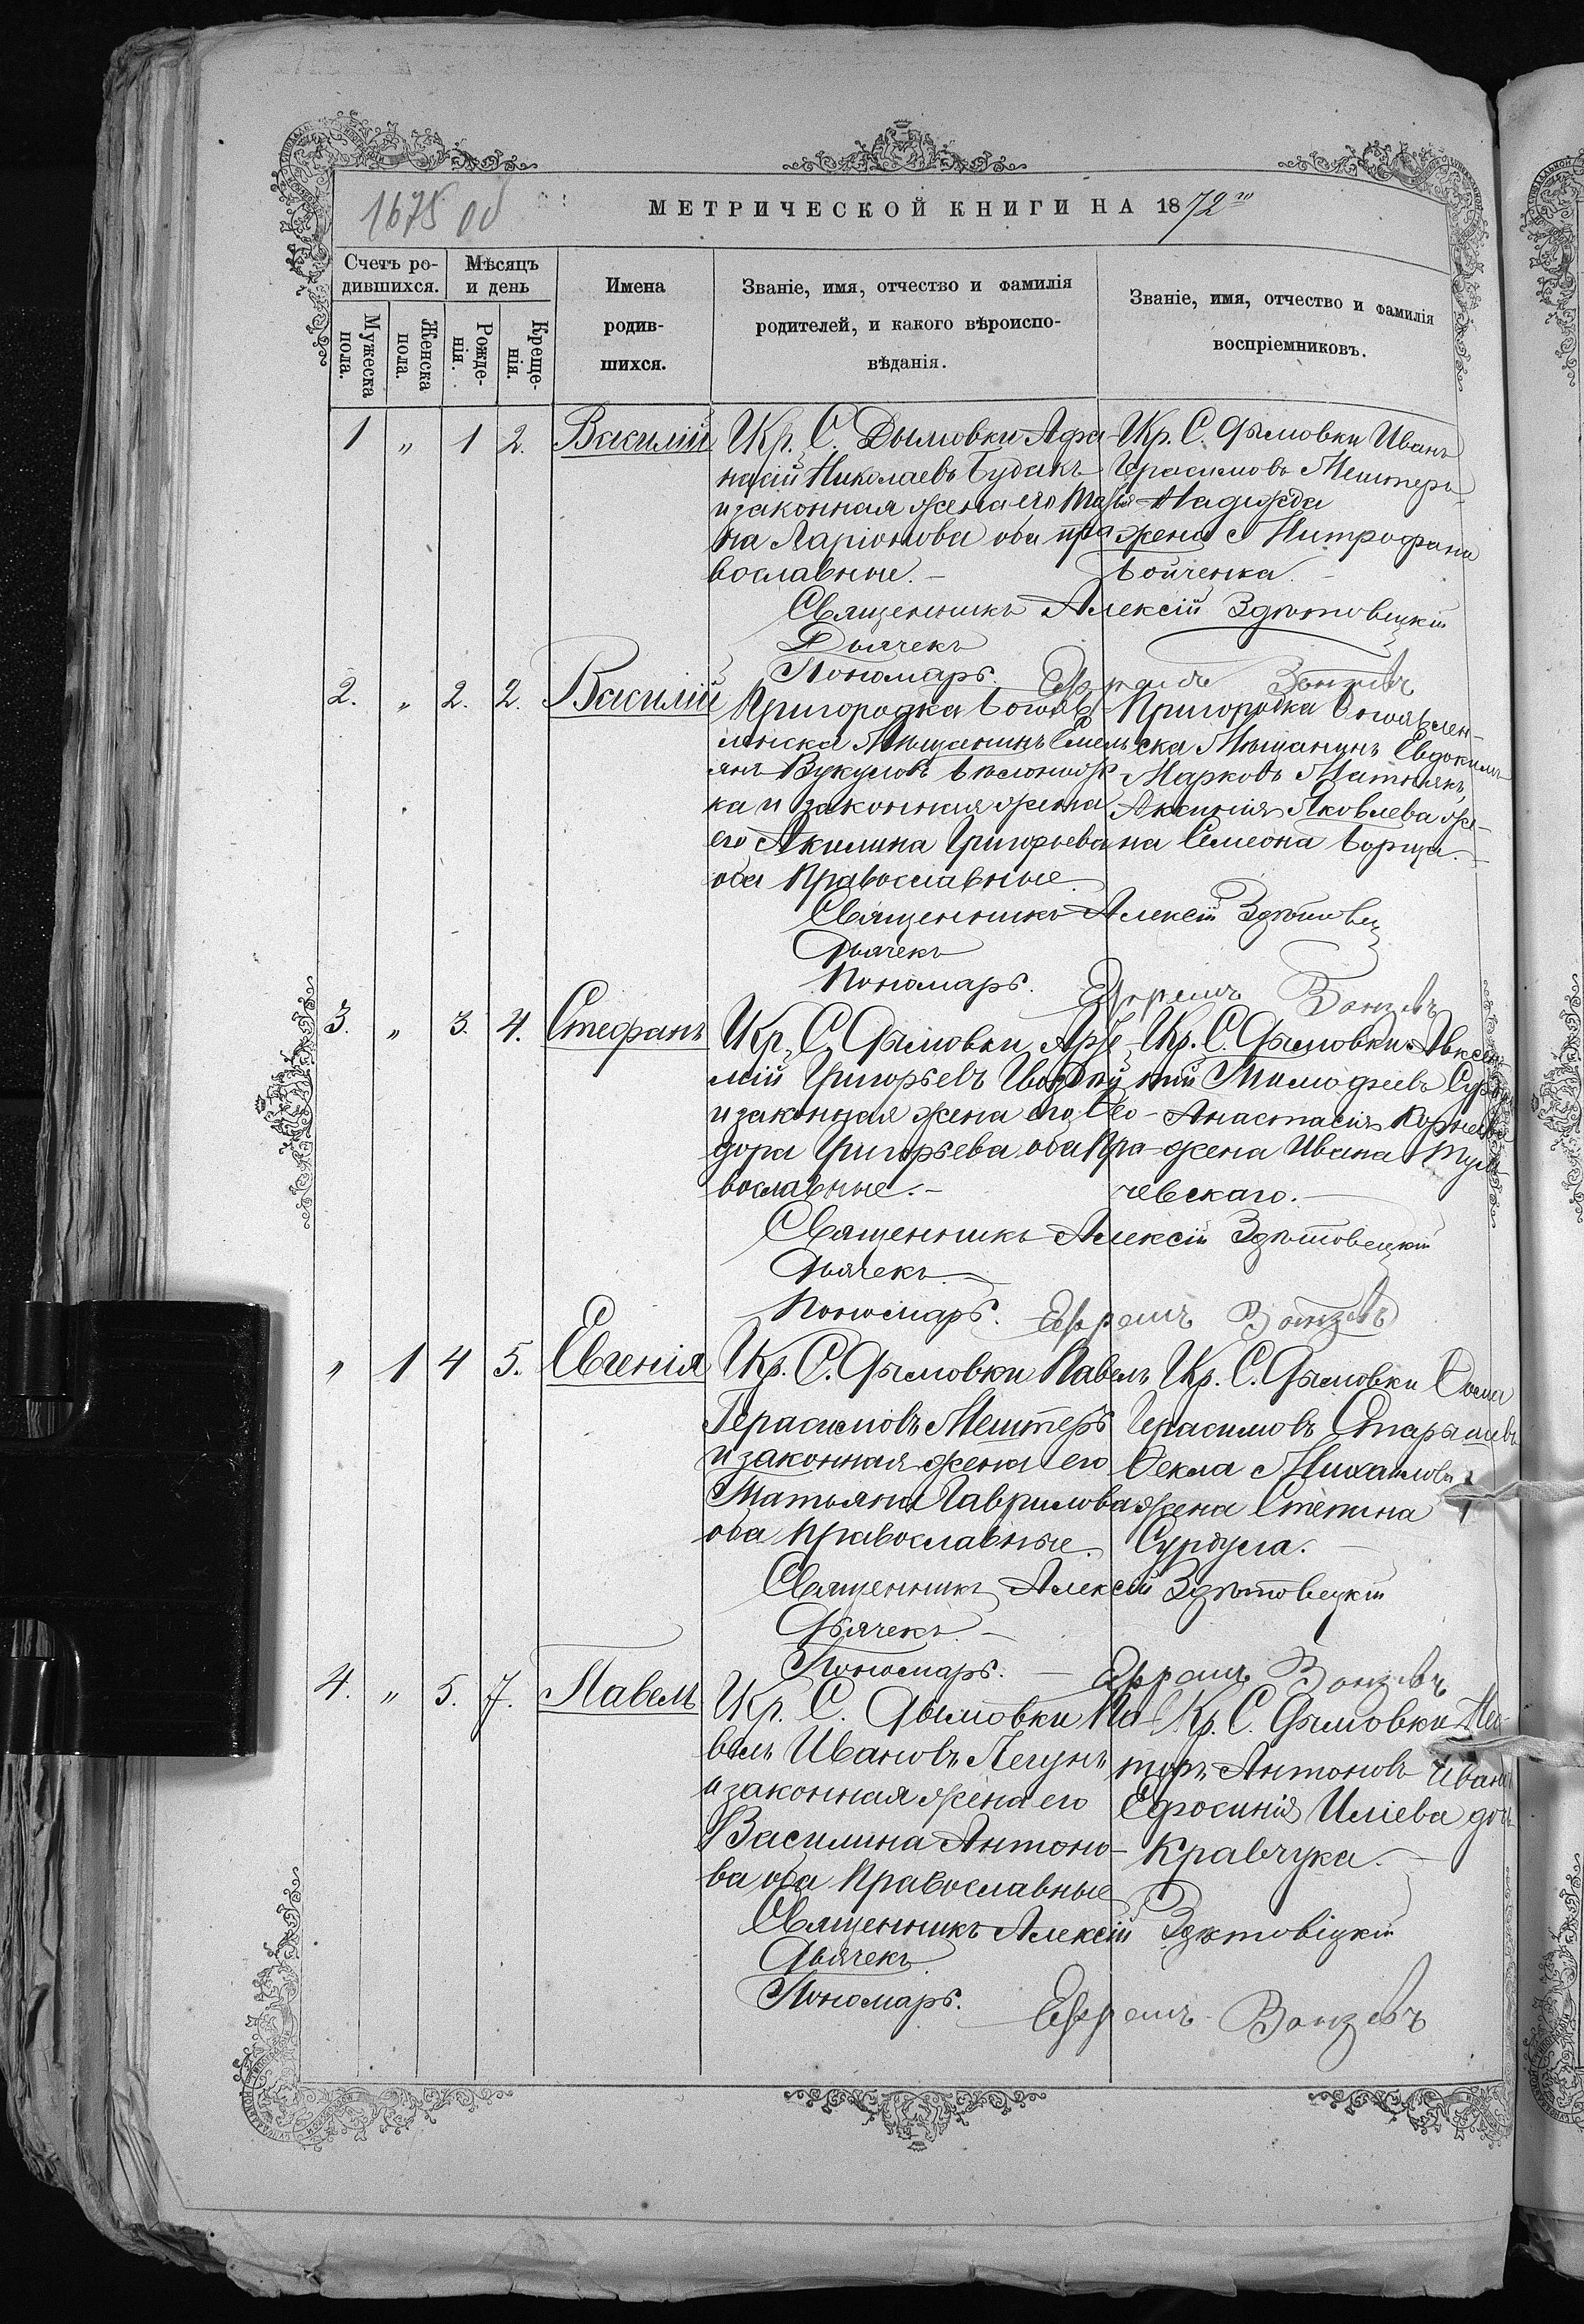 1675 об
МЕТРИЧЕСКОЙ КНИГИ НА 1872го
Счетъ ро-
дившихся.
Мѣсяцъ
и день
Мужеска
пола.
Женска
пола.
Рожде-
нія.
Креще-
нія.
Имена
родив-
шихся.
Званіе, имя, отчество и фамилія
родителей, и какого вѣроиспо-
вѣданія.
Званіе, имя, отчество и фамилія
воспріемниковъ.
1 " 1 2. Василій
Ц Кр. С. Дымовки Афа-
насій Николаевъ Будакъ
и законная жена его
на Ларіонова оба пра
вославные.-
Ц Кр. С. Дымовки Иванъ
Герасимовъ Мештеръ
Надежда
жена Митрофана
Бойченка.-
Священникъ Алексій Здѣтовецкій
Дьячекъ
Пономарь. Ефремъ
2. " 2. 2. Василій
Пригородка Богояв-
ленска Мѣщанинъ Емель
янъ Вукуловъ
ка и законная жена
его Акилина Григорьева
оба Православные
Пригородка Богоявлен-
ска Мѣщанинъ Евдокимъ
Марковъ
Аксинія Яковлева же-
на Семеона Борща.-
Священникъ Алексій
Дьячекъ
Пономарь. Ефремъ
3. " 3. 4. Стефанъ
Ц Кр. С. Дымовки Арте-
мій Григорьевъ
и законная жена его Ѳео-
дора Григорьева оба Пра-
вославные.-
Ц Кр. С. Дымовки Авксен
тий Тимофеевъ
Анастасія Корнеева
жена Ивана
чевскаго.-
Священникъ Алексій Здѣтовецкій
Дьячекъ
Пономарь. Ефремъ
" 1 4 5. Евгенія
Ц Кр. С. Дымовки Павелъ
Герасимовъ Мештеръ
и законная жена его
Татьяна Гаврилова
оба Православные.
Ц Кр. С. Дымовки Ѳома
Герасимовъ
Ѳекла Михаилова
жена Степана
Сурдула.-
Священникъ Алексій Здѣтовецкій
Дьячекъ.-
Пономарь.- Ефремъ
4. " 5. 7. Павелъ
Ц Кр. С. Дымовки Па-
велъ Ивановъ Легунъ
и законная жена его
Василина Антоно-
ва оба Православные
Ц Кр. С. Дымовки
Антоновъ
Ефросинія Иліева дочь
Кравчука.-
Священникъ Алексій Здѣтовіцкій
Дьячекъ
Пономарь. Ефремъ